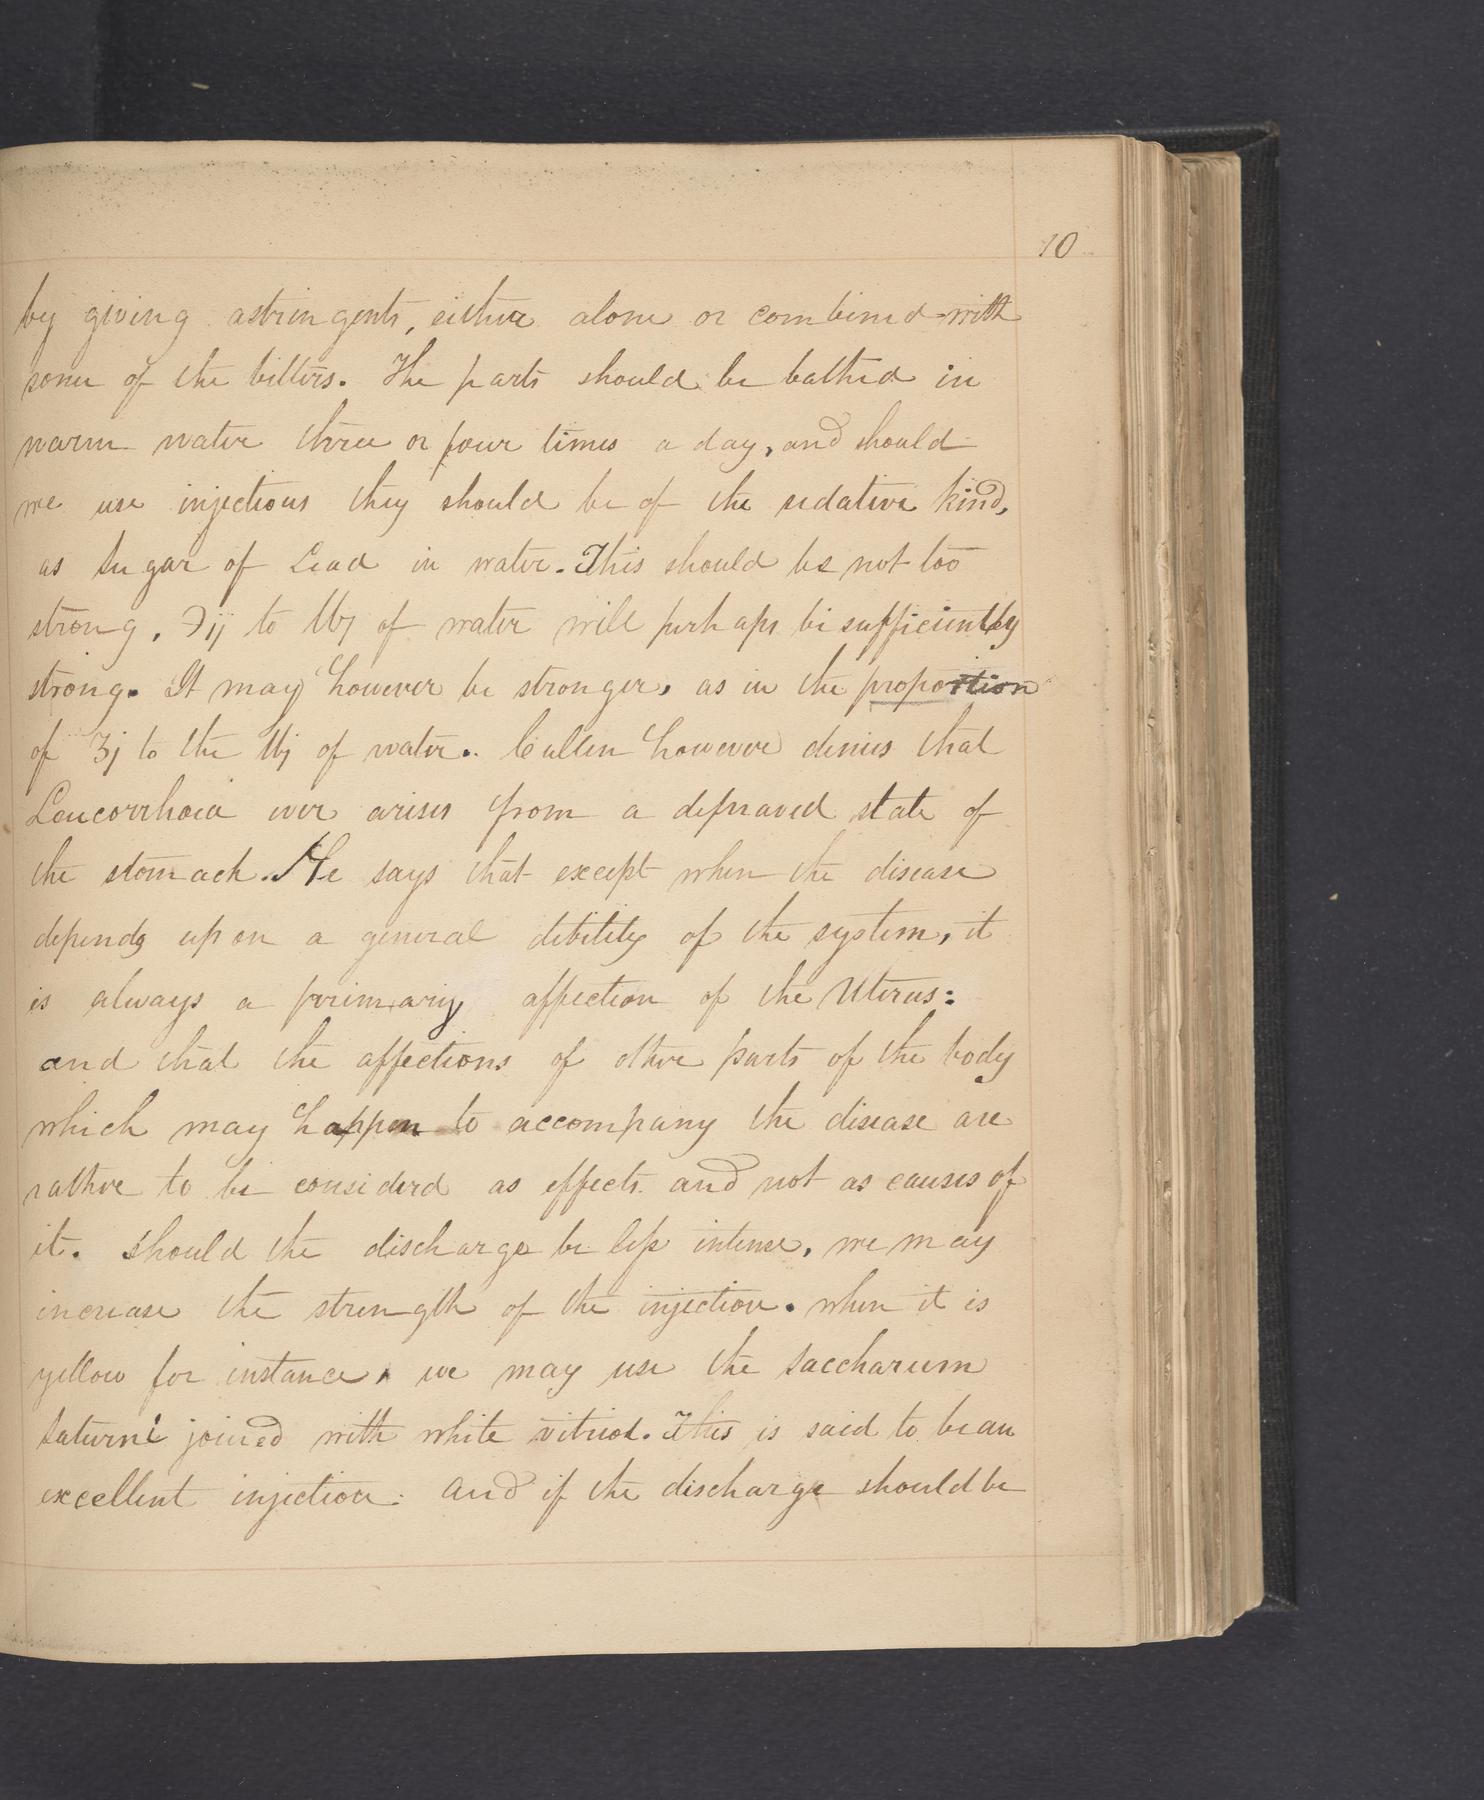 10
by giving astringents, either alone or combined with
some of the bitters. The parts should be bathed in
warm water three or four times a day, and should
we use injections they should be of the sedative kind,
as Sugar of Lead in water. This should be not too
strong, ℈ij to ℔j of water will perhaps be sufficiently
strong. It may however be stronger, as in the proportion
of ʒj to the ℔j of water. Cullen however denies that
Leucorrhoea ever arises from a depraved state of
the stomach. He says that except when the disease
depends upon a general debility of the system, it
is always a primary affection of the Uterus:
and that the affections of other parts of the body
which may happen to accompany the disease are
rather to be considerd as effects and not as causes of
it. Should the discharge be less intense, we may
increase the strength of the injection. when it is
yellow for instance, we may use the Saccharum
Saturni joined with white vitriol. This is said to be an
excellent injection: and if the discharge should be